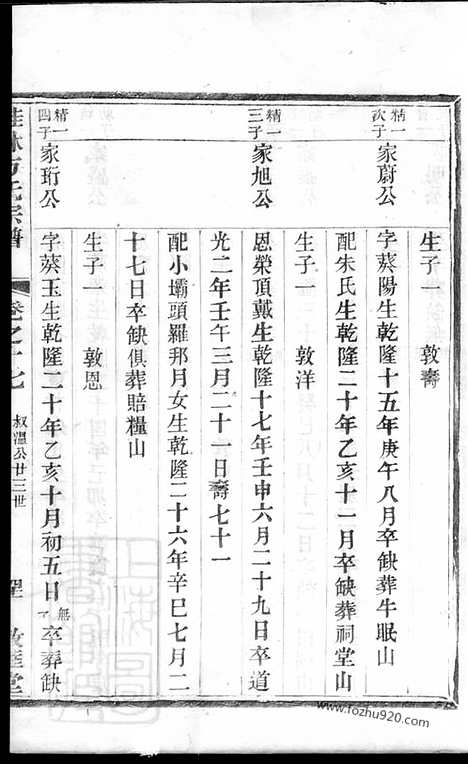 生子一 敦壽
精一次子 家蔚公 字葵陽生乾隆十五年庚午八月卒缺葬牛眠山
配朱氏生乾隆二十年乙亥十一月卒缺葬祠堂山
生子一 敦洋
精一三子 家旭公 恩榮頂戴生乾隆十七年壬申六月二十九日卒道
光二年壬午三月二十一日壽七十一
配小壩頭羅那月女生乾隆二十六年辛巳七月二
十七日卒缺俱葬賠糧山
生子一 敦恩
精一四子 家珩公 字葵玉生乾隆二十年乙亥十月初五日無卒葬缺
桂林方氏宗譜 卷之十七 叔淐公廿三世 敦睦堂
www.fozhu920.com